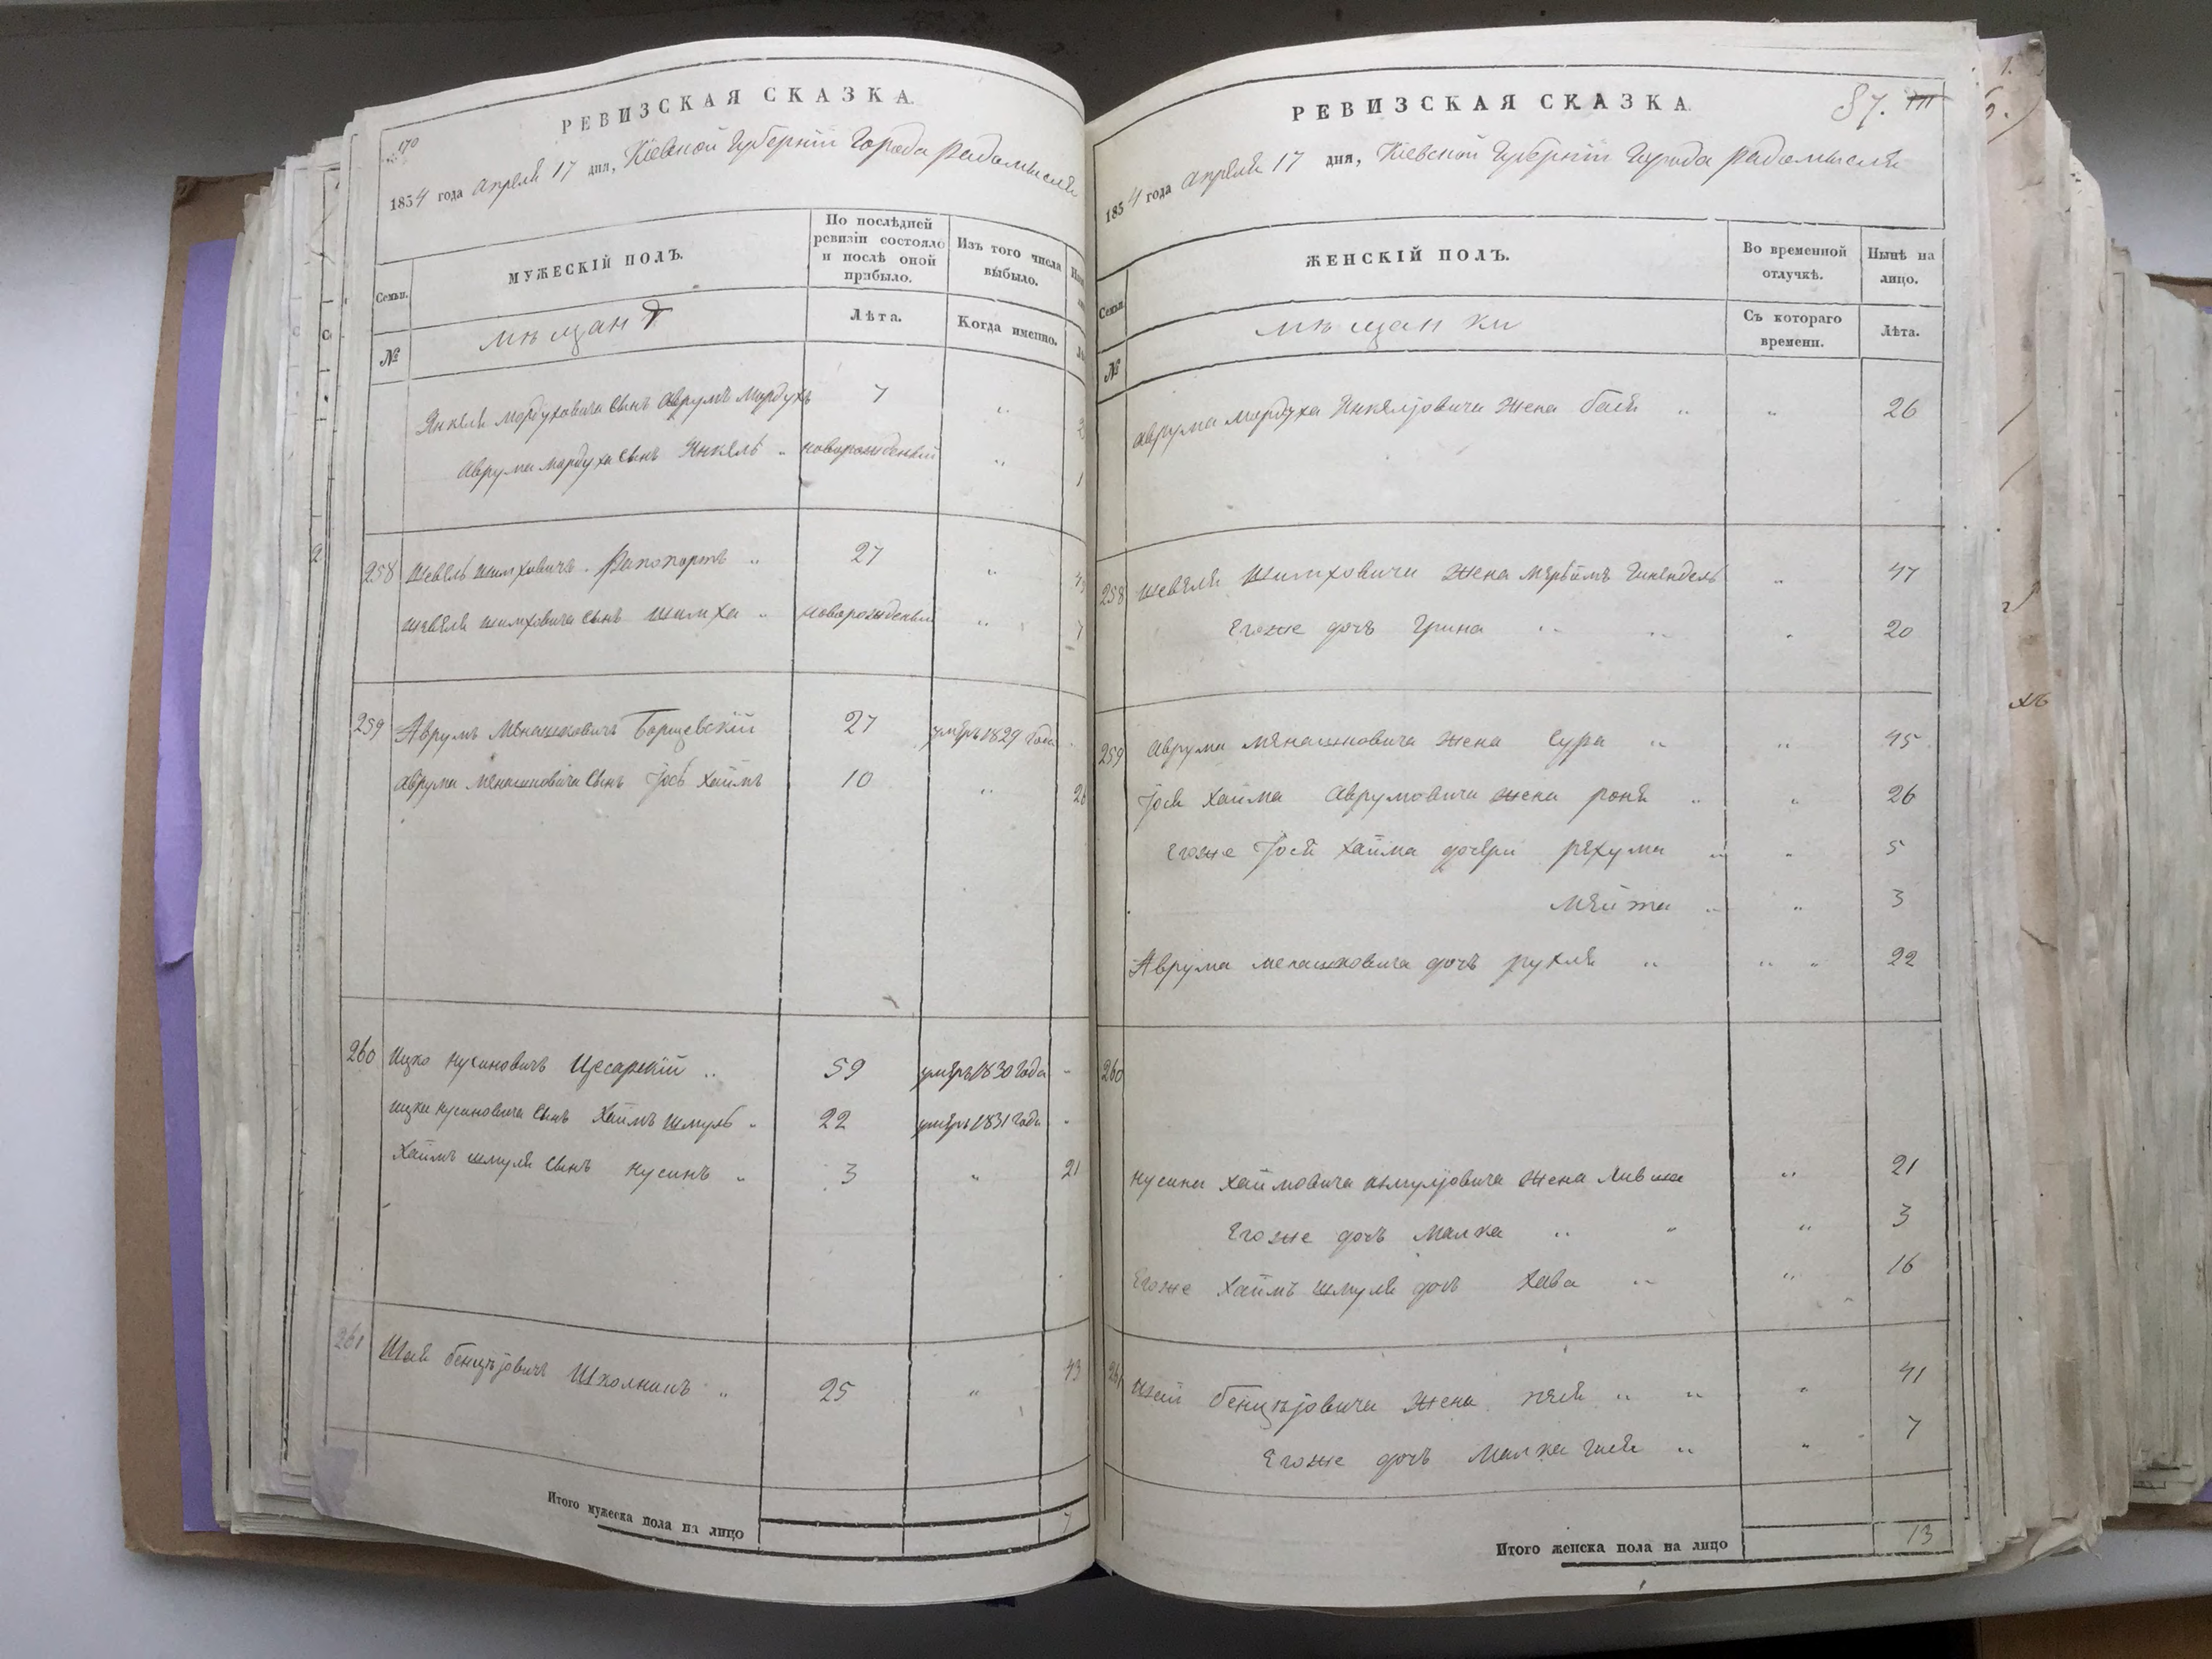 РЕВИЗСКАЯ СКАЗКА.
170
1834 года Апреля 17 дня, Кіевской Губерніи Города Радомысля
Семьи.
МУЖЕСКІЙ ПОЛЪ.
По послѣдней ревизіи состояло и послѣ оной прибыло.
Изъ того числа выбыло.
№
мѣщанѣ
Лѣта.
Когда именно.
Янкеля Мордуховича сынъ Аврумъ Мордухъ 7 „
Аврума Мордуха сынъ Янкель „ новорожденный „ 1
258 Шевель Шимховичъ Рапопортъ „ 27 „
Шевеля Шимховича сынъ Шимха „ новорожденый „ 7
259 Аврумъ Менашковичъ Борщевскій 27 умеръ 1829 года
Аврума Менашковича сынъ Іось Хаимъ 10 „ 26
260 Ицко Нусиновичъ Цесарскій „ 59 умеръ 1830 года „
Ицки Нусиновича сынъ Хаимъ Шмуль „ 22 умеръ 1831 года „
Хаимъ Шмуля сынъ Нусинъ „ 3 „ 21
261 Шая Бенцѣіовичъ Школникъ „ 25 „ 43
Итого мужеска пола на лицо 7
РЕВИЗСКАЯ СКАЗКА.
87.
1834 года Апреля 17 дня, Кіевской Губерніи Города Радомысля
Семьи.
ЖЕНСКІЙ ПОЛЪ.
Во временной отлучкѣ.
Нынѣ на лицо.
№
мѣщанки
Съ котораго времени.
Лѣта.
Аврума Мордуха Янкеліовича жена Бася „ „ 26
258 Шевеля Шимховича жена Мерьямъ Гинендель „ 47
Егоже дочь Грина „ „ „ 20
259 Аврума Менашковича жена Сура „ „ 45
Іося Хаима Аврумовича жена роня „ „ 26
Егоже Іося Хаима дочери рехума „ „ 5
Мейта „ „ 3
Аврума Менашковича дочь рухля „ „ „ 22
260
Нусина Хаимовича Шмуліовича жена Ливша „ 21
Егоже дочь Малка „ „ „ 3
Егоже Хаимъ Шмуля дочь Хава „ „ 16
261 Шаи Бенцѣіовича жена песя „ „ „ 41
Егоже дочь Малка Гися „ „ 7
Итого женска пола на лицо 13